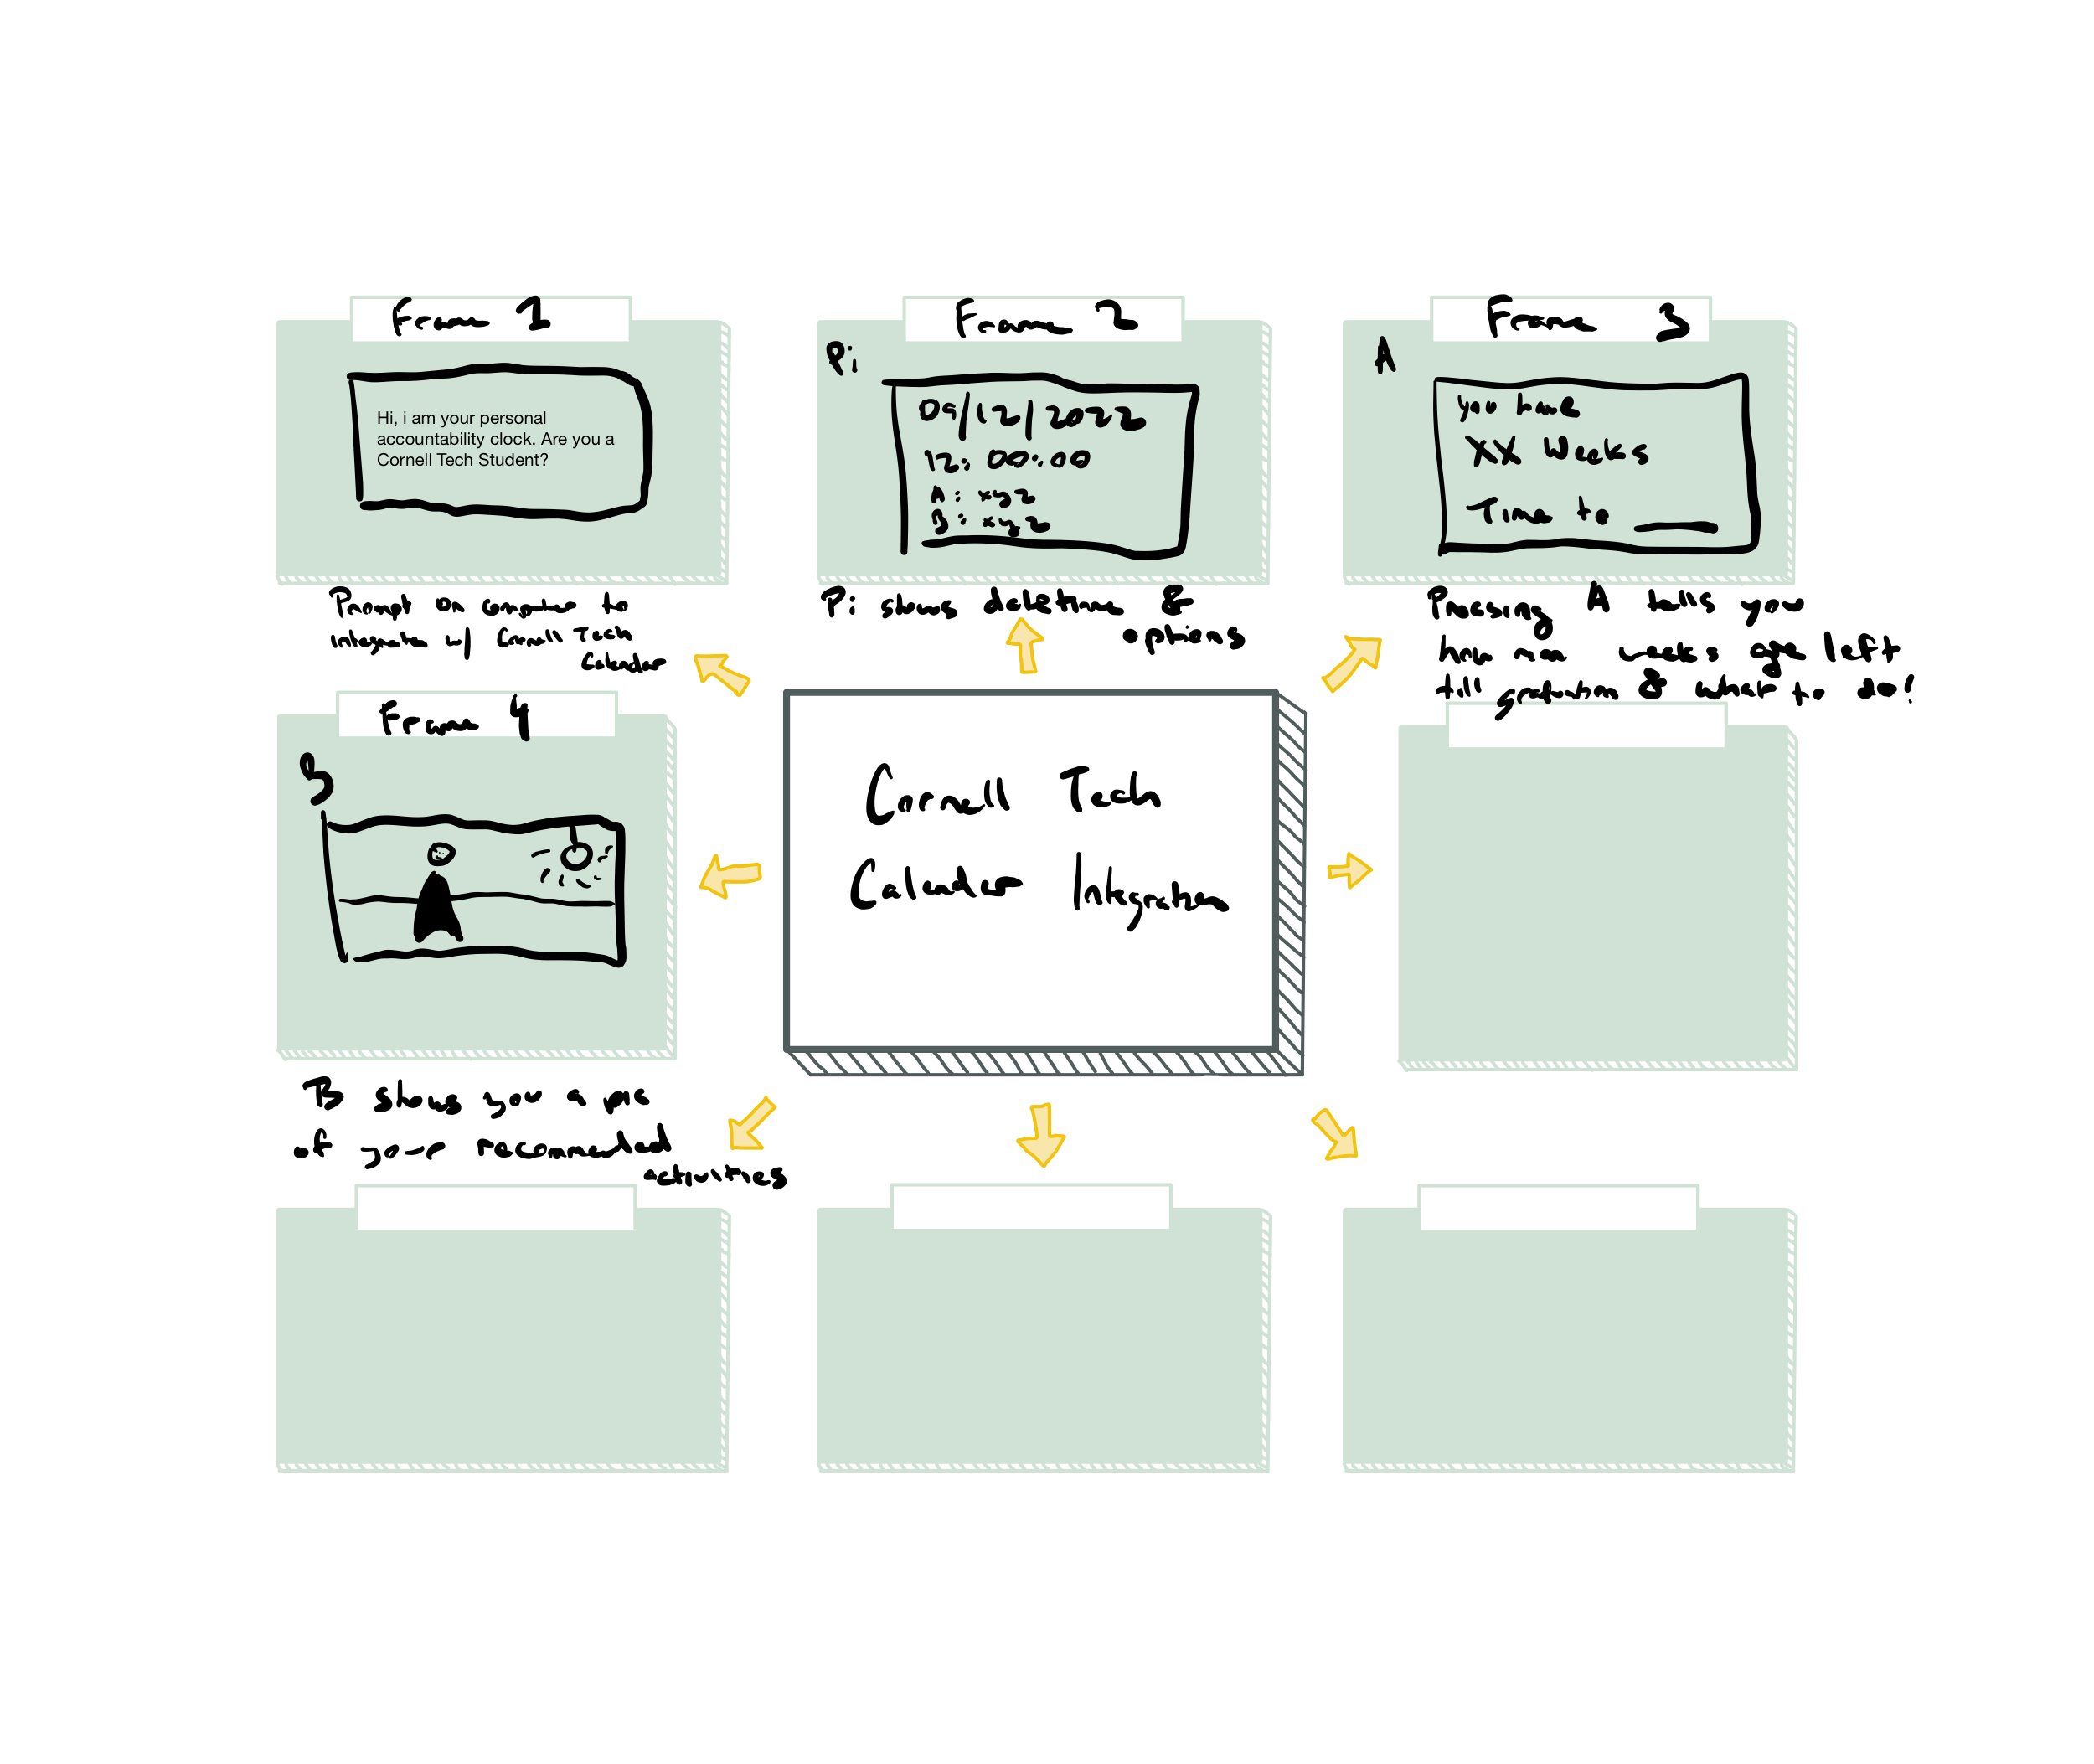 Frame 1
Hi, i am your personal
accountability clock. Are you a
Cornell Tech Student?
Prompt on computer to
integrate w/ Cornell Tech
Calendar
Frame 2
Pi
09/12/2022
12:00:00
A: xyz
B: xyz
Pi shows date time &
options
Frame 3
A
you have
XX Weeks
Time to
Pressing A tells you
how many weeks left
till graduation & what to do!
Frame 4
B
B shows you a pic
of your recommended
activities
Cornell Tech
Calendar Integration